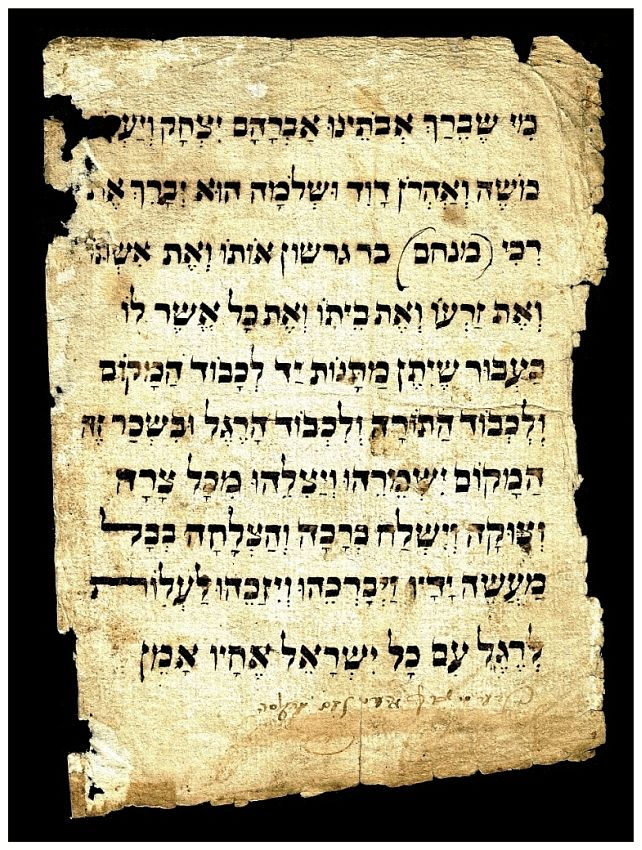 מִי שֶׁבֵּרַךְ אֲבֹתֵינוּ אַבְרָהָם יִצְחָק
מֹשֶׁה וְאַהְרֹן דָוִד וּשְׁלֹמֹה הוּא יְבָרֵךְ אֶת
רְבִּי (מנחם) בר גרשון אוֹתוֹ וְאֶת אִשְׁתּוֹ
וְאֶת זַרְעוֹ וְאֶת בֵּיתוֹ וְאֶת כָּל אֲשֶׁר לוֹ
בַּעֲבוּר שֶׁיִתֵּן מַתְּנוֹת יַד לִכְבוֹד הַמָּקוֹם
וְלִכְבוֹד הַתּוֹרָה וְלִכְבוֹד הָרֶגֶל וּבִשְׂכַר זֶה
הַמָּקוֹם יִשְׁמְרֵהוּ וְיַצִּלֵהוּ מִכָּל צָרָה
וְצוּקָה וְיִשְׁלַח בְּרָכָה וְהַצְלָחָה בְּכָל
מַעֲשֵׂה יָדָיו וִיבָרְכֵהוּ וִיזַכֵּהוּ לַעֲלוֹת
לְרֶגֶל עִם כָּל יִשְׂרָאֵל אֶחָיו אָמֵן